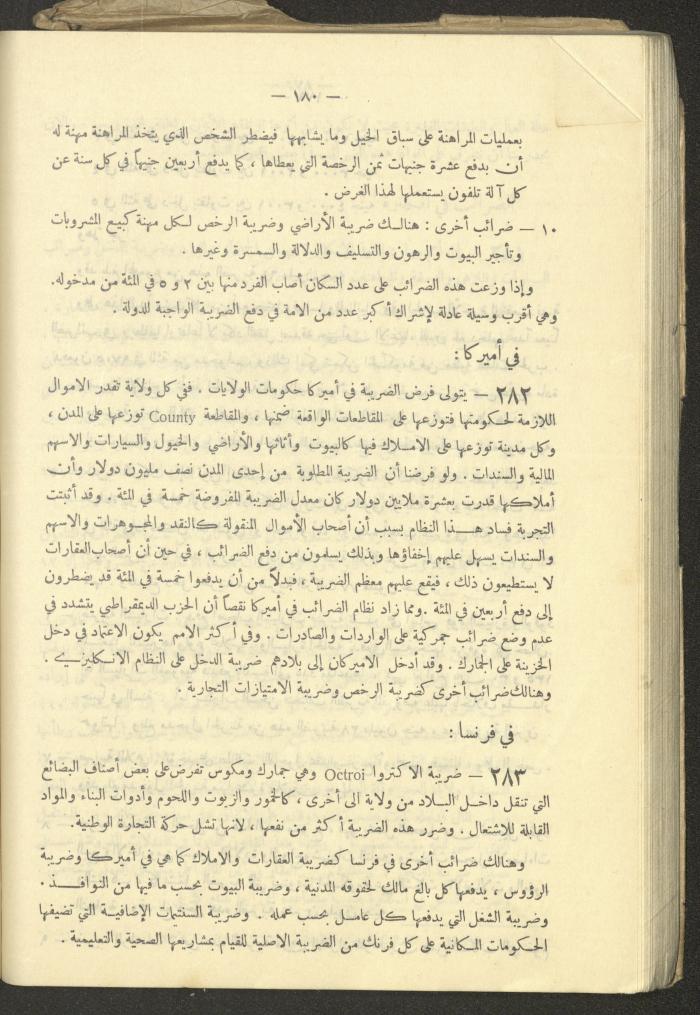 — ١٨٠ —
بعمليات المراهنة على سباق الخيل وما يشابهها فيضطر الشخص الذي يتخذ المراهنة مهنة له
أن يدفع عشرة جنيهات ثمن الرخصة التي يعطاها ، كما يدفع أربعين جنيهاً في كل سنة عن
كل آلة تلفون يستعملها لهذا الغرض .
١٠ — ضرائب أخرى : هنالك ضريبة الأراضي وضريبة الرخص لكل مهنة كبيع المشروبات
وتأجير البيوت والرهون والتسليف والدلالة والسمسرة وغيرها .
وإذا وزعت هذه الضرائب على عدد السكان أصاب الفرد منها بين ٢ و ٥ في المئة من مدخوله.
وهي أقرب وسيلة عادلة لإشراك أكبر عدد من الامة في دفع الضريبة الواجبة للدولة .
في أميركا :
٢٨٢ — يتولى فرض الضريبة في أميركا حكومات الولايات . ففي كل ولاية تقدر الاموال
اللازمة لحكومتها فتوزعها على المقاطعات الواقعة ضمنها ، والمقاطعة County توزعها على المدن ،
وكل مدينة توزعها على الاملاك فيها كالبيوت وأثاثها والأراضي والخيول والسيارات والاسهم
المالية والسندات . ولو فرضنا أن الضريبة المطلوبة من إحدى المدن نصف مليون دولار وأن
أملاكها قدرت بعشرة ملايين دولار كان معدل الضريبة المفروضة خمسة في المئة . وقد أثبتت
التجربة فساد هذا النظام بسبب أن أصحاب الأموال المنقولة كالنقد والمجوهرات والاسهم
والسندات يسهل عليهم إخفاؤها وبذلك يسلمون من دفع الضرائب ، في حين أن أصحاب العقارات
لا يستطيعون ذلك ، فيقع عليهم معظم الضريبة ، فبدلاً من أن يدفعوا خمسة في المئة قد يضطرون
إلى دفع أربعين في المئة .ومما زاد نظام الضرائب في أميركا نقصاً أن الحزب الديمقراطي يتشدد في
عدم وضع ضرائب جمركية على الواردات والصادرات . وفي أكثر الامم يكون الاعتماد في دخل
الخزينة على الجمارك . وقد أدخل الاميركان إلى بلادهم ضريبة الدخل على النظام الانكليزي .
وهنالك ضرائب أخرى كضريبة الرخص وضريبة الامتيازات التجارية .
في فرنسا :
٢٨٣ — ضريبة الاكتروا Octroi وهي جمارك ومكوس تفرض على بعض أصناف البضائع
التي تنقل داخل البلاد من ولاية الى أخرى ، كالخمور والزيوت واللحوم وأدوات البناء والمواد
القابلة للاشتعال . وضرر هذه الضريبة أكثر من نفعها ، لانها تشل حركة التجارة الوطنية.
وهنالك ضرائب أخرى في فرنسا كضريبة العقارات والاملاك كما هي في أميركا وضريبة
الرؤوس ، يدفعها كل بالغ مالك لحقوقه المدنية ، وضريبة البيوت بحسب ما فيها من النوافذ .
وضريبة الشغل التي يدفعها كل عامل بحسب عمله . وضريبة السنتيمات الإضافية التي تضيفها
الحكومات المكانية على كل فرنك من الضريبة الاصلية للقيام بمشاريعها الصحية والتعليمية .